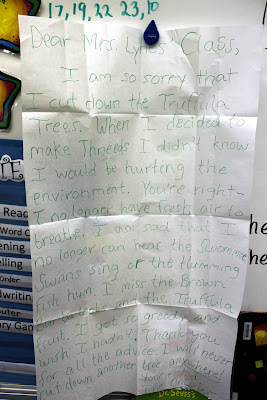 17, 19, 22 23, 10
Dear Mrs. Lynes' Class,
I am so sorry that
I cut down the Truffula
Trees. When I decided to
make Thneeds I didn't know
I would be hurting the
environment. You're right-
I no longer have fresh air to
breathe! I am sad that I
no longer can hear the Swomme
Swans sing or the Humming
fish hum. I miss the Brown
and the Truffula
fruit. I got so greedy and
wish I hadn't. Thank you
for all the advice. I will never
cut down another tree anywhere!
Your friend,
Read
Word
ening
elling
Order
dwriting
puter
ary Game
Dr. Seuss's